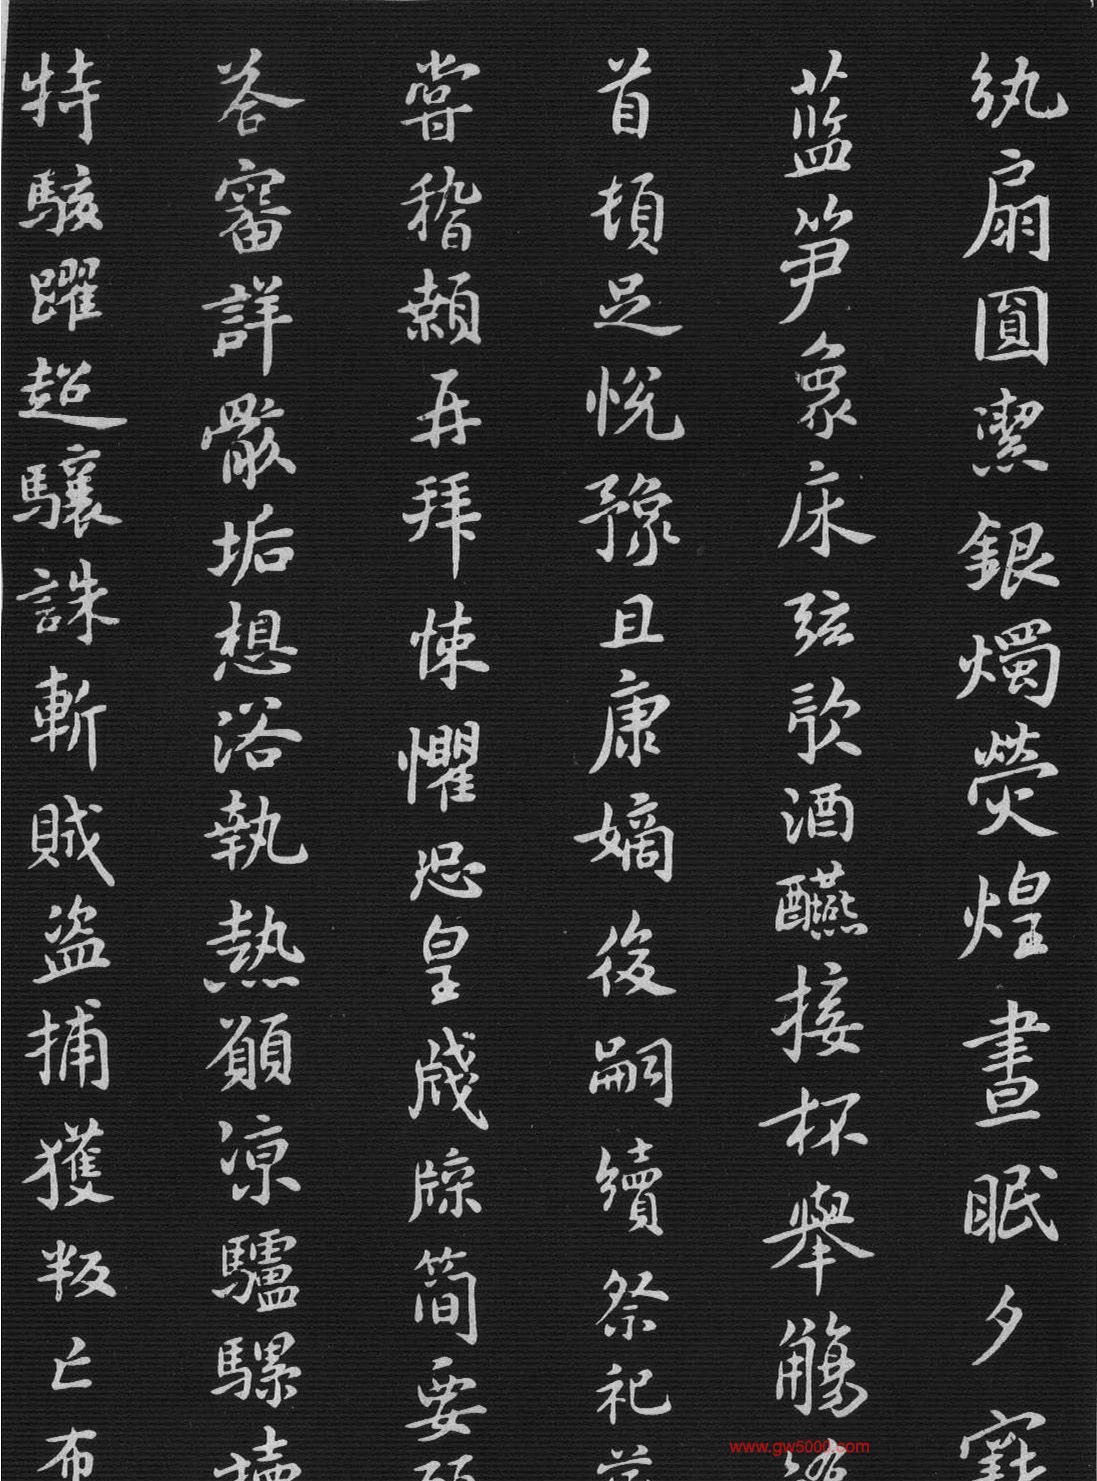 紈扇圓潔銀燭熒煌晝眠夕
藍笋象床弦歌酒醼接杯舉觴
首頓足悅豫且康嫡後嗣續祭祀
嘗稽顙再拜悚懼恐皇牋牒簡要
答審詳骸垢想浴執熱願涼驢騾
特駭躍超驤誅斬賊盜捕獲叛亡布
www.gw5000.com